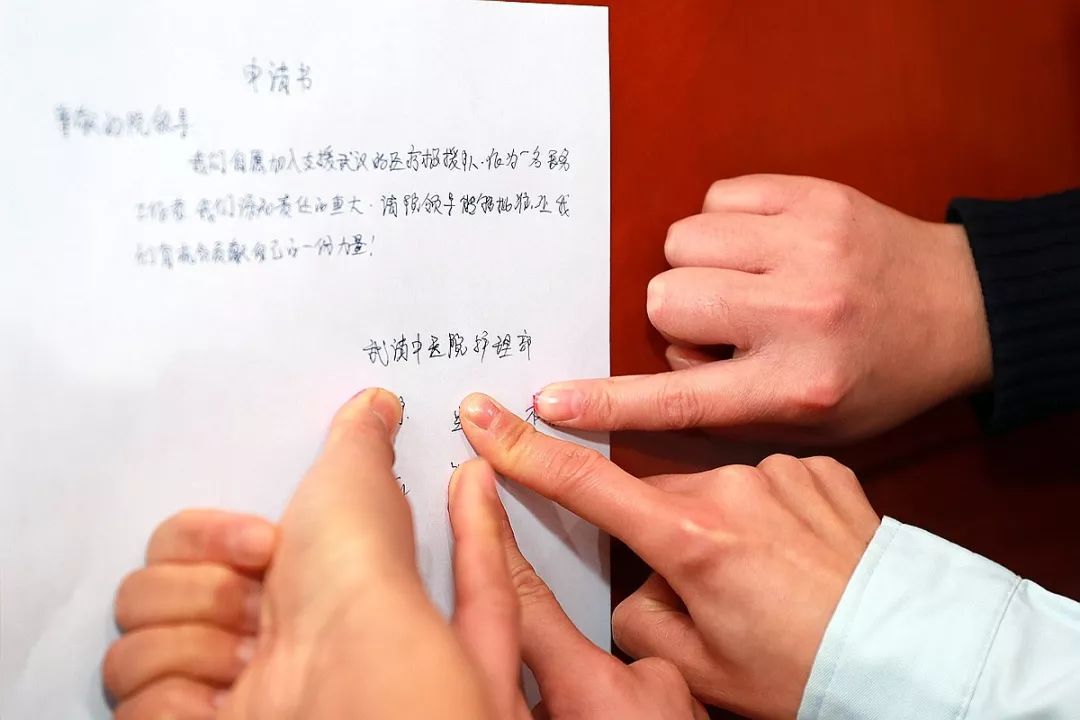 申请书
尊敬的院领导
我们自愿加入支援武汉的医疗救援队.作为一名医务
工作者 我们深知责任的重大.请领导能够批准.让我
们有机会贡献自己的一份力量!
武清中医院护理部